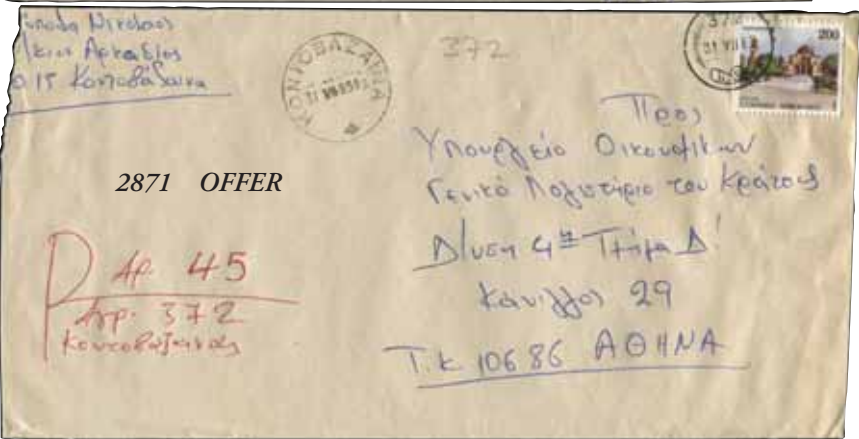 Νικόλαος
Αρκαδίας
15 Κοντοβάζαινα
ΚΟΝΤΟΒΑΖΑΙΝΑ
372
372
200
2871 OFFER
Προς
Υπουργείο Οικονομικών
Γενικό Λογιστήριο του Κράτους
Δ/νση 4η Τμήμα Δ!
Κάνιγγος 29
Τ.Κ. 10686 ΑΘΗΝΑ
Αρ. 45
Αγρ. 372
Κοντοβαζαίνας